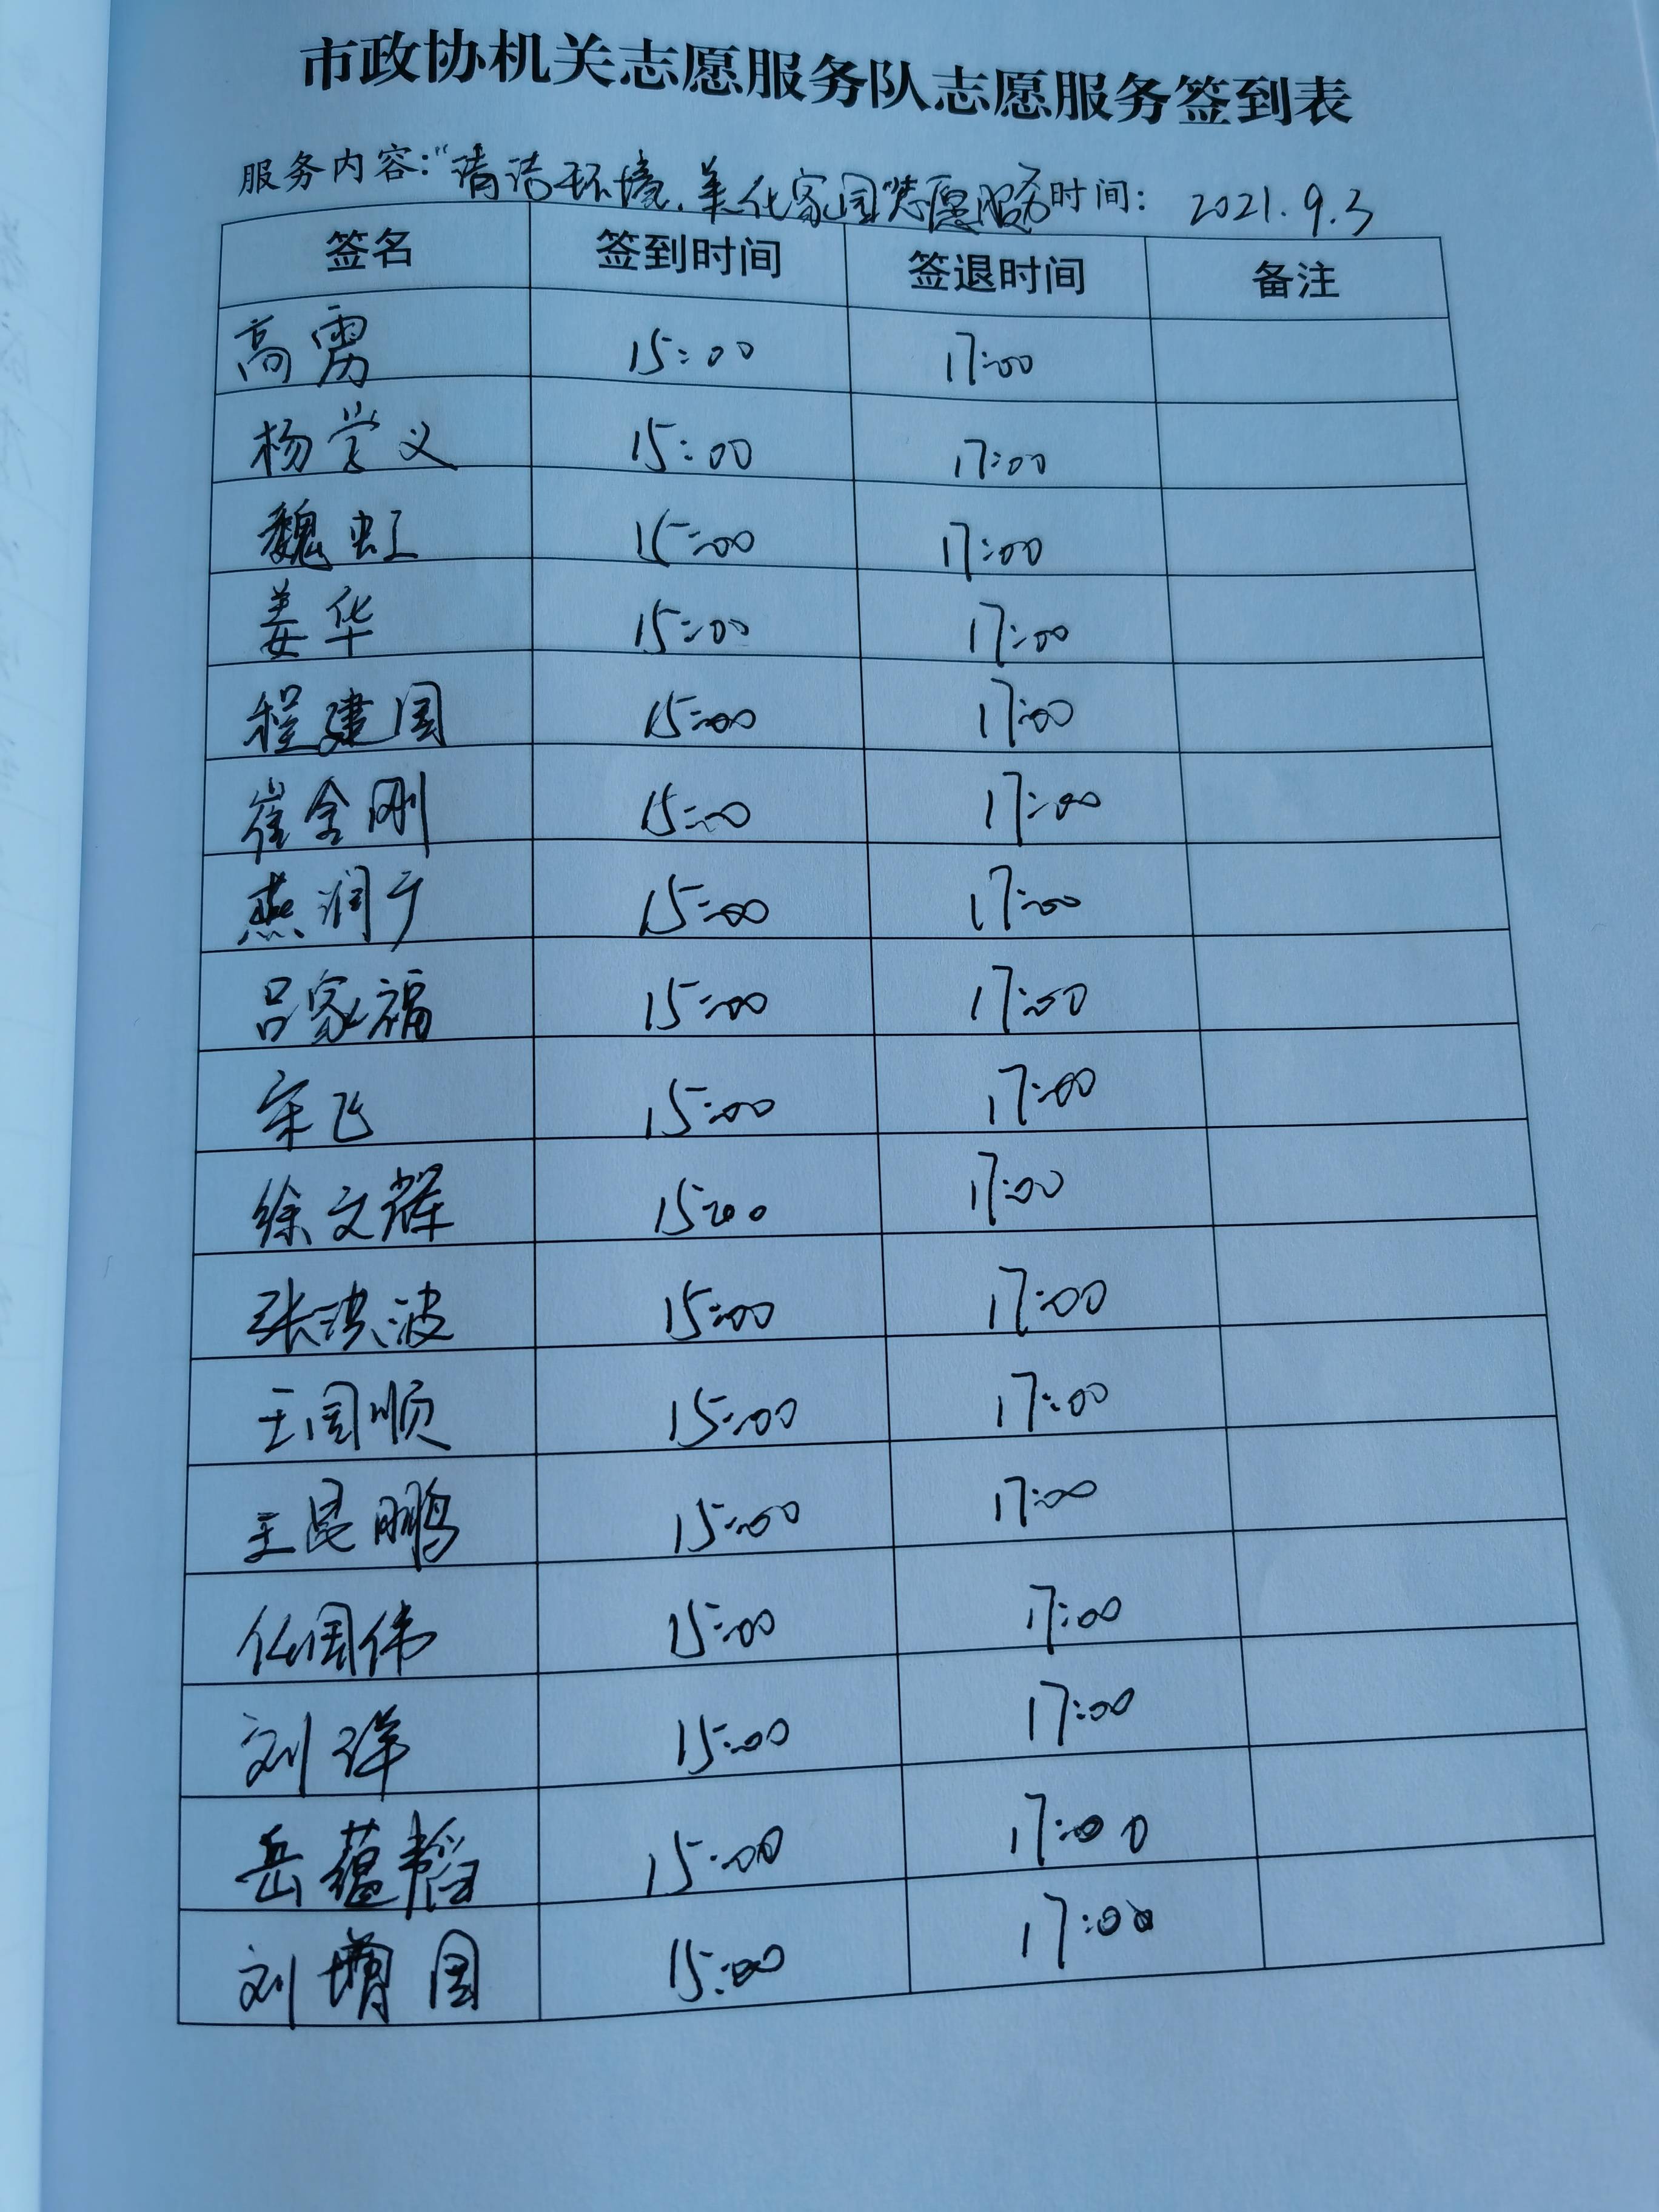 市政协机关志愿服务队志愿服务签到表
服务内容："清洁环境，美化家园"志愿服务 时间： 2021.9.3
签名 签到时间 签退时间 备注
高雷 15:00 17:00
杨学义 15:00 17:00
魏虹 15:00 17:00
姜华 15:00 17:00
程建国 15:00 17:00
崔金刚 15:00 17:00
燕润于 15:00 17:00
吕家福 15:00 17:00
宋飞 15:00 17:00
徐文辉 15:00 17:00
张洪波 15:00 17:00
王国顺 15:00 17:00
王昆鹏 15:00 17:00
国伟 15:00 17:00
刘洋 15:00 17:00
岳蕴韬 15:00 17:00
刘增国 15:00 17:00